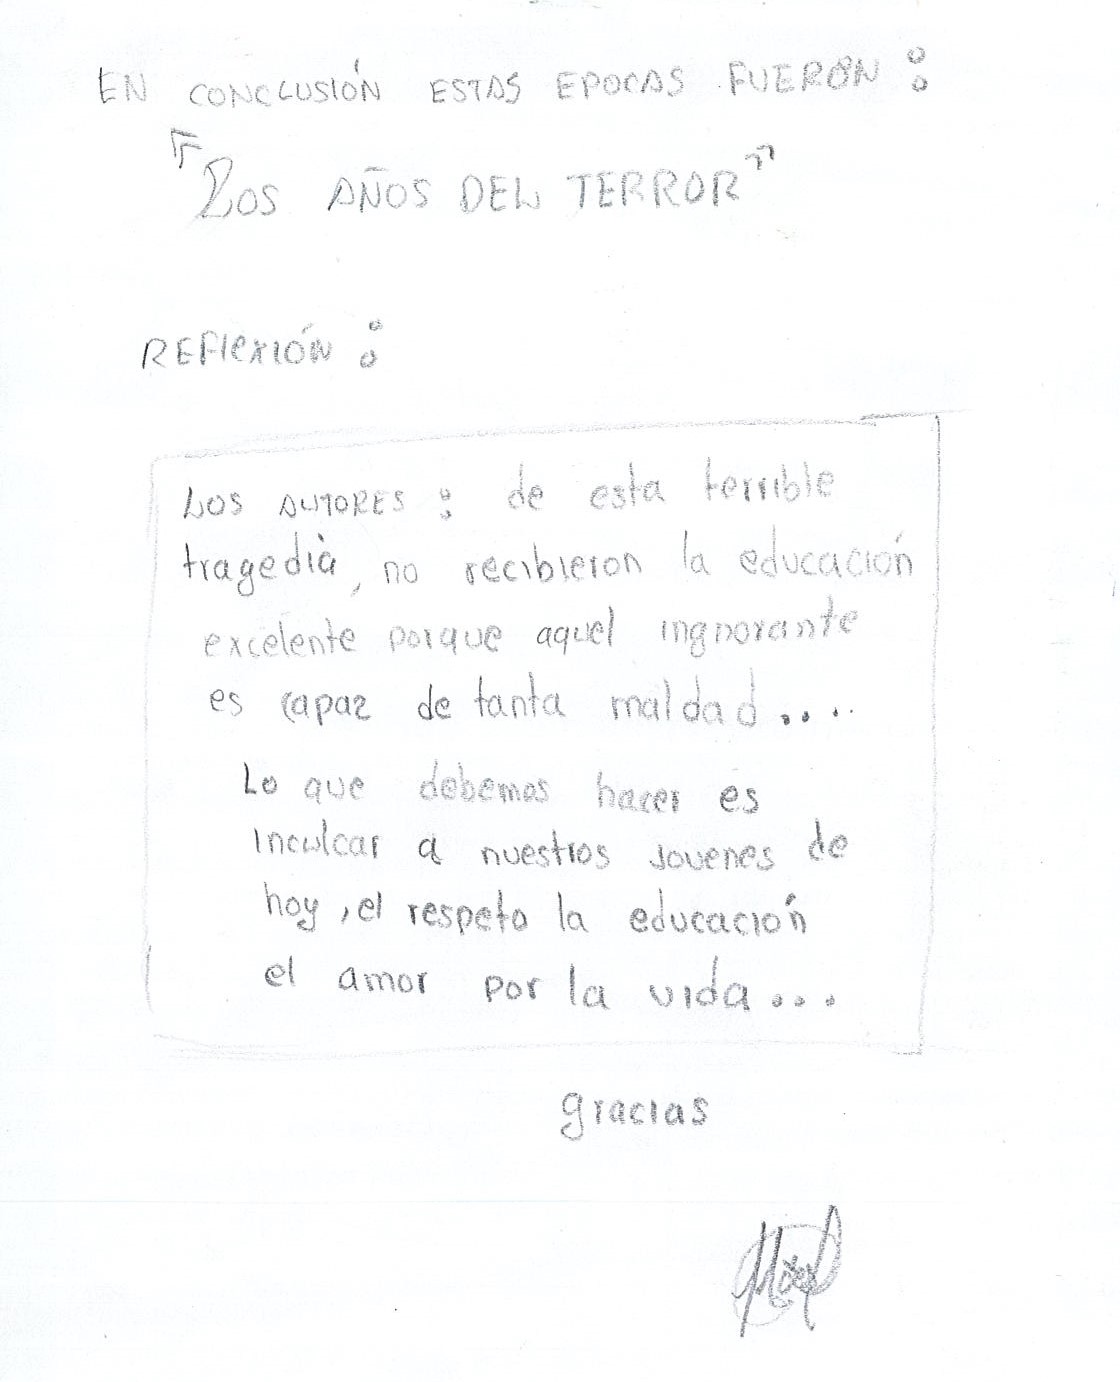 EN CONCLUSIÓN ESTAS EPOCAS FUERON :
"LOS AÑOS DEL TERROR"
REFlexIÓN :
LOS AUTORES : de esta terrible
tragedia, no recibieron la educación
excelente porque aquel ingnorante
es capaz de tanta maldad....
Lo que debemos hacer es
inculcar a nuestros jovenes de
hoy, el respeto la educación
el amor por la vida...
gracias